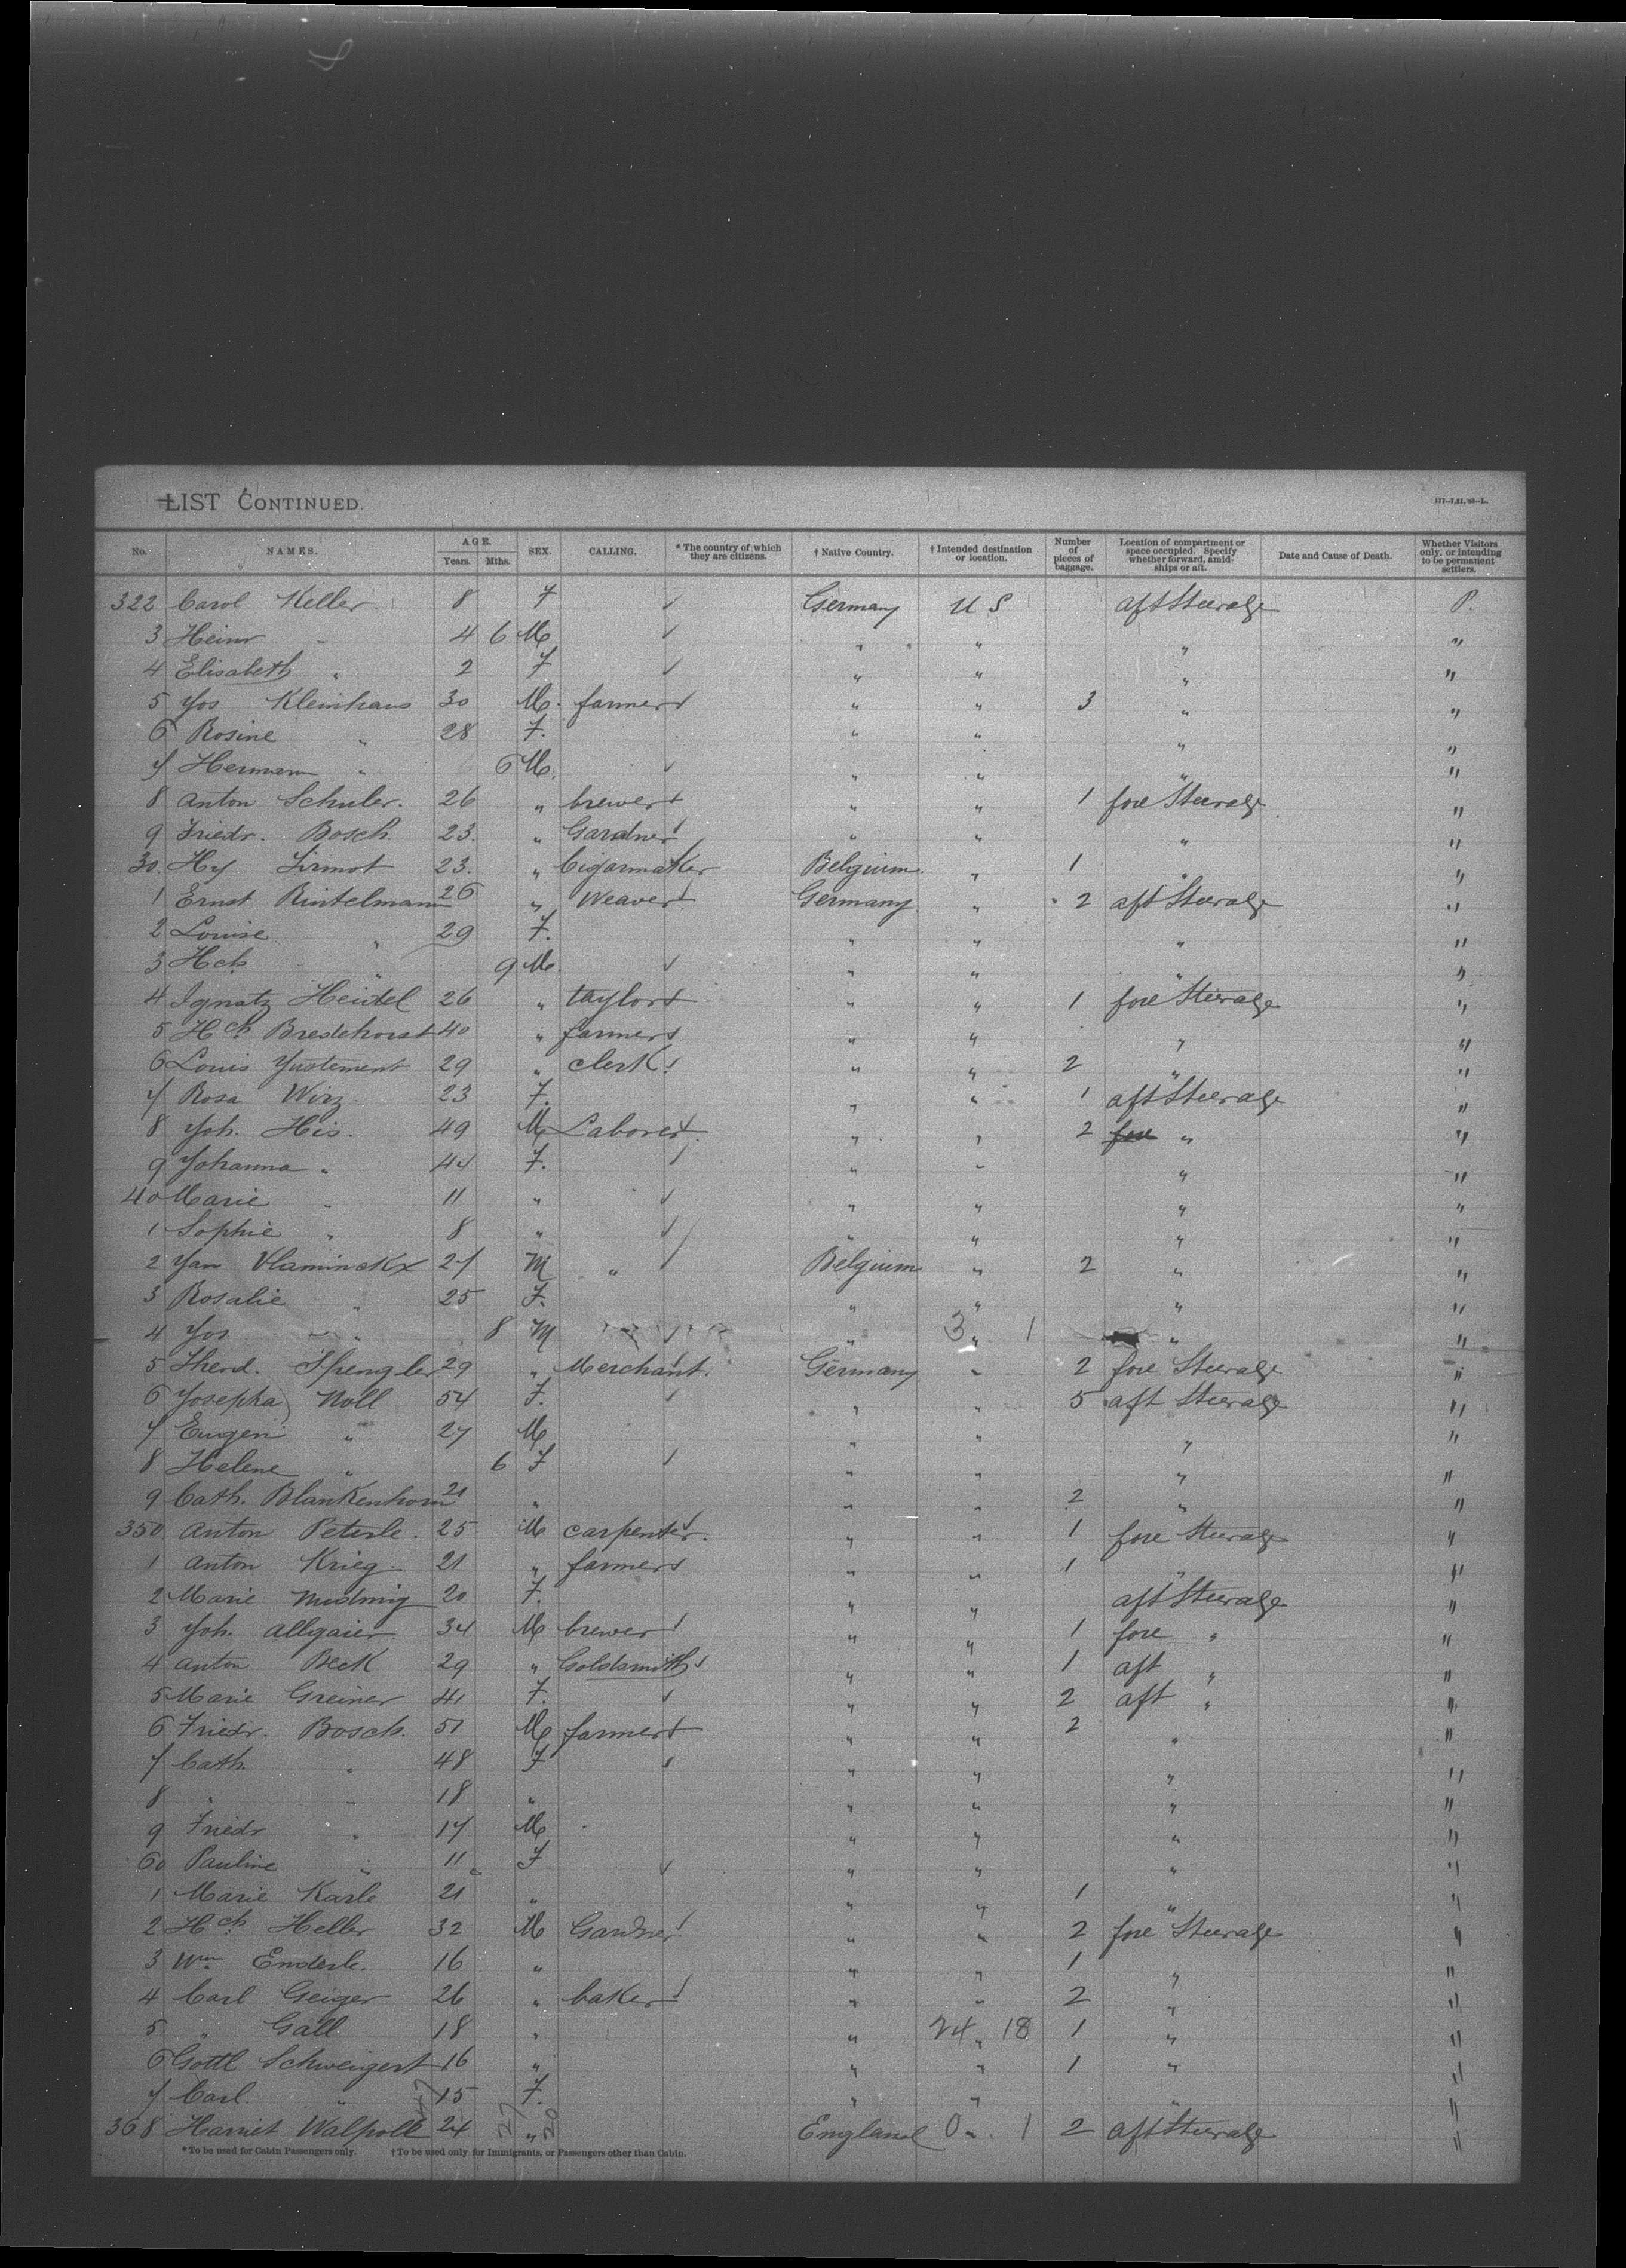 LIST CONTINUED.
No. NAMES. AGE. Years. Mths. SEX. CALLING. * The country of which they are citizens. † Native Country. † Intended destination or location. Number of pieces of baggage. Location of compartment or space occupied. Specify whether forward, amidships or aft. Date and Cause of Death. Whether Visitors only, or intending to be permanent settlers.
322 Carol Keller 8 F Germany U S aft Steerage P.
3 Heinr " 4 6 M " " " "
4 Elisabeth " 2 F " " " "
5 Jos Kleinhans 30 M. farmer " " 3 " "
6 Rosine " 28 F. " " " "
7 Hermann " 6 M. " " " "
8 Anton Schuler. 26 " brewer " " 1 fore Steerage "
9 Friedr. Bosch. 23. " Gardner " " " "
30. Hy Firmot 23. " Cigarmaker Belgium " 1 " "
1 Ernst Rintelmann 26 " Weaver Germany " 2 aft Steerage "
2 Louise " 29 F. " " " "
3 Hch " 9 M. " " " "
4 Ignatz Heidel 26 " taylor " " 1 fore Steerage "
5 Hch Bredehorst 40 " farmer " " " "
6 Louis Justement 29 " clerk " " 2 " "
7 Rosa Wirz 23 F. " " 1 aft Steerage "
8 Joh. His. 49 M Laborer " " 2 fore " "
9 Johanna " 44 F. " " " "
40 Marie " 11 " " " " "
1 Sophie " 8 " " " " "
2 Jan Vlaminckx 27 M " Belgium " 2 " "
3 Rosalie " 25 F. " " " "
4 Jos " 8 M " 3 " 1 " "
5 Therd. Spengler 29 " Merchant. Germany " 2 fore Steerage "
6 Josepha Noll 54 F. " " 5 aft Steerage "
7 Eugen " 27 M " " " "
8 Helene " 6 F " " " "
9 Cath. Blankenhorn 21 " " " 2 " "
350 Anton Peterle. 25 M carpenter. " " 1 fore Steerage "
1 Anton Krieg 21 " farmer " " 1 " "
2 Marie 20 F. " " aft Steerage "
3 Joh. Allgaier 34 M brewer " " 1 fore " "
4 Anton Beck 29 " Goldsmith " " 1 aft " "
5 Marie Greiner 41 F. " " 2 aft " "
6 Friedr. Bosch. 51 M farmer " " 2 " "
7 Cath. " 48 F " " " "
8 " " 18 " " " " "
9 Friedr " 17 M " " " "
60 Pauline " 11 F " " " "
1 Marie Karle 21 " " " 1 " "
2 Hch Heller 32 M Gardner " " 2 fore Steerage "
3 Wm Enderle. 16 " " " 1 " "
4 Carl Geiger 26 " baker " " 2 " "
5 " Gall 18 " " 24 " 18 1 " "
6 Gottl Schweigert 16 " " " 1 " "
7 Carl " 15 F. " " " "
368 Harriet Walpole 24 " England 0 " 1 2 aft Steerage "
47 27 20
*To be used for Cabin Passengers only. †To be used only for Immigrants, or Passengers other than Cabin.